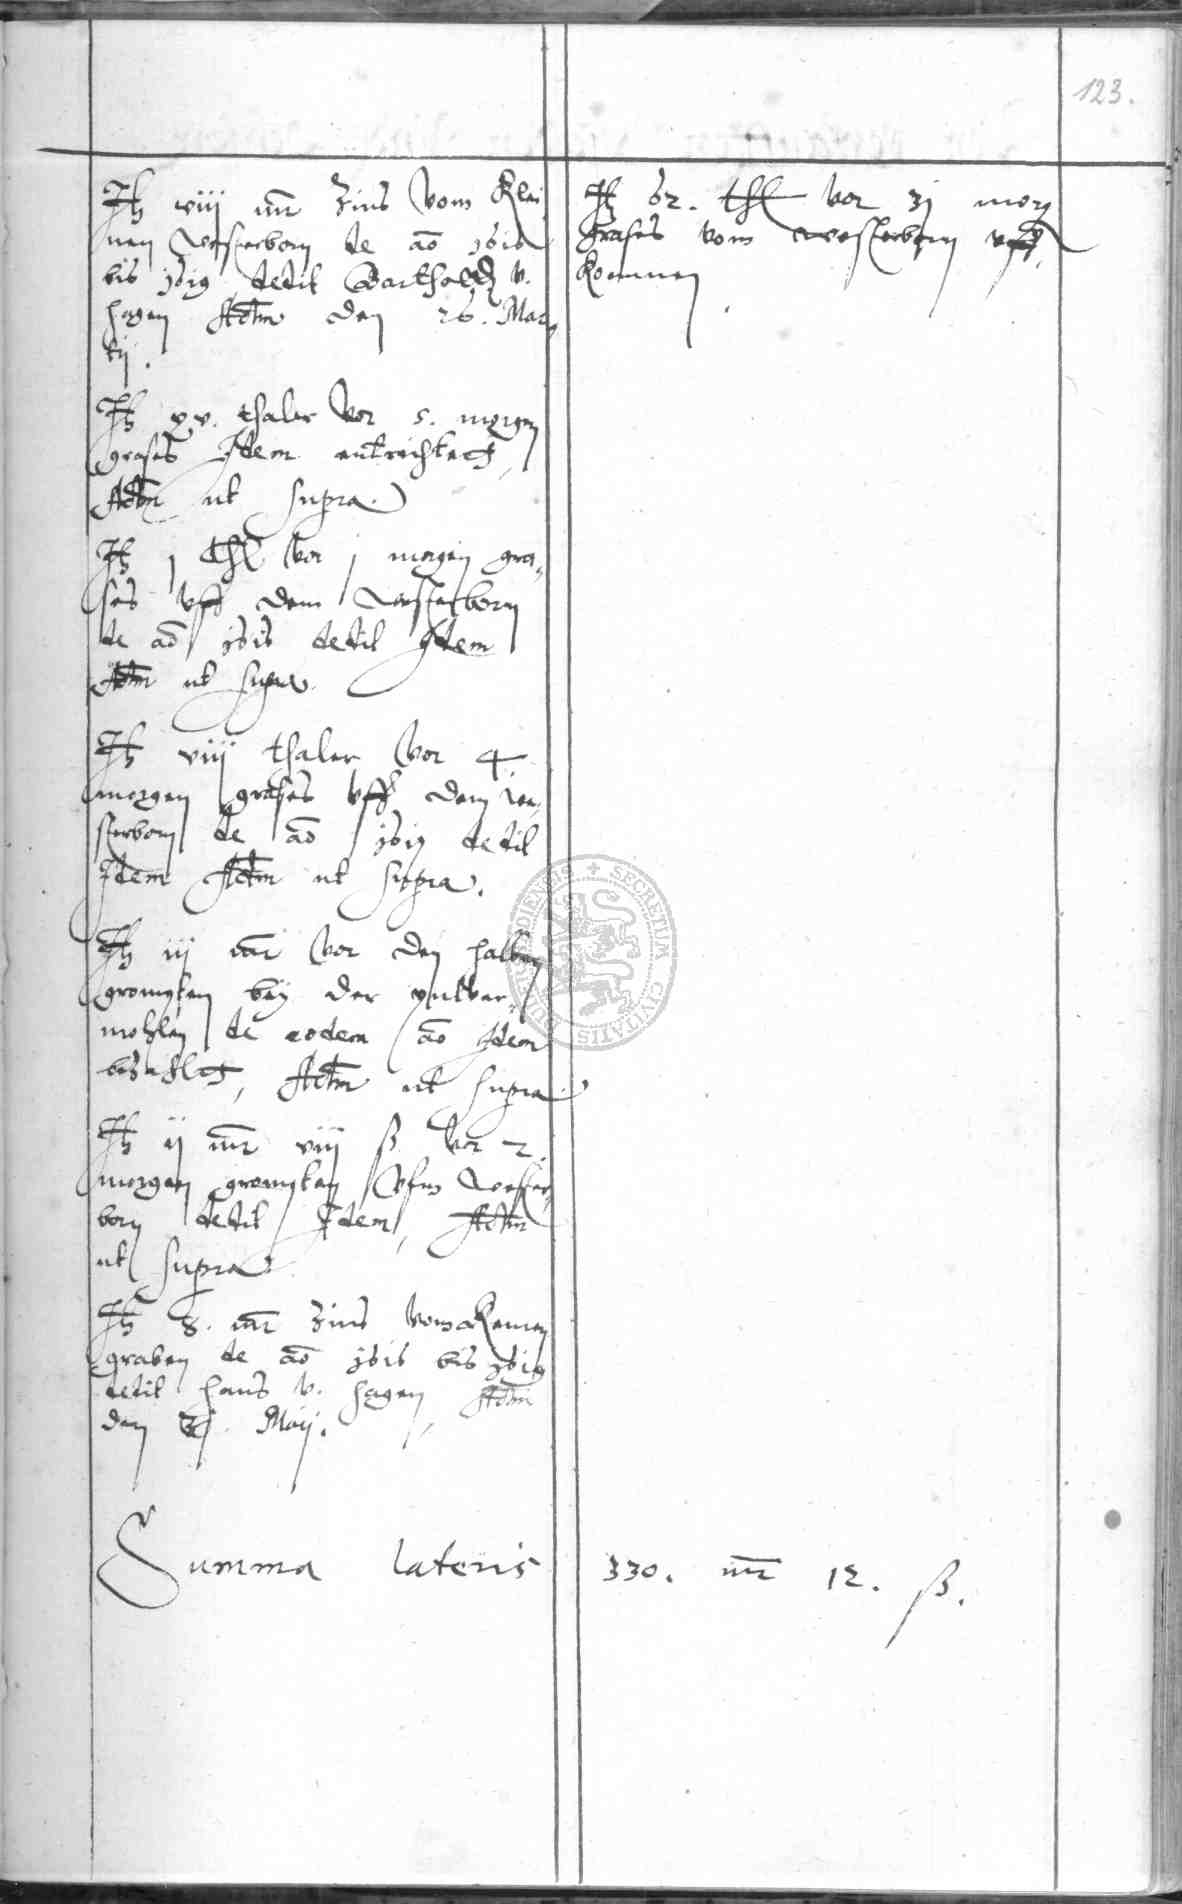 123.
It viij mr Zins vom Klei-
nen Westerborn de ao 1616
bis 1619 dedit Barthold v.
Hagen Actm den 26. Mar-
tij.
It xv. thaler vor 5. morgen
grases Idem entrichtet,
Actm ut supra.
It j thl vor j morgen gra-
ses vff dem Westerborn
de ao 1616 dedit Idem
Actm ut supra.
It viij thaler vor 4.
morgen grases vff dem We-
sterborn de ao dedit
Idem Actm ut supra.
It iij mr vor den halben
bey der
mohlen de eodem ao Idem
bezahlet, Actm ut supra.
It ij mr viij ß vor 2.
morgen vfm Wester-
born dedit Idem, Actm
ut supra.
It 8. mr Zins vom
graben de ao 1616 bis 1619
dedit Hans v. Hagen, Actm
den 31. Maij.
It 62. thl vor 31 morg
grases vom Westerborn vff-
kommen.
Summa lateris 330. mr 12. ß.
SECRETUM CIVITATIS DUDERSTADIENSIS